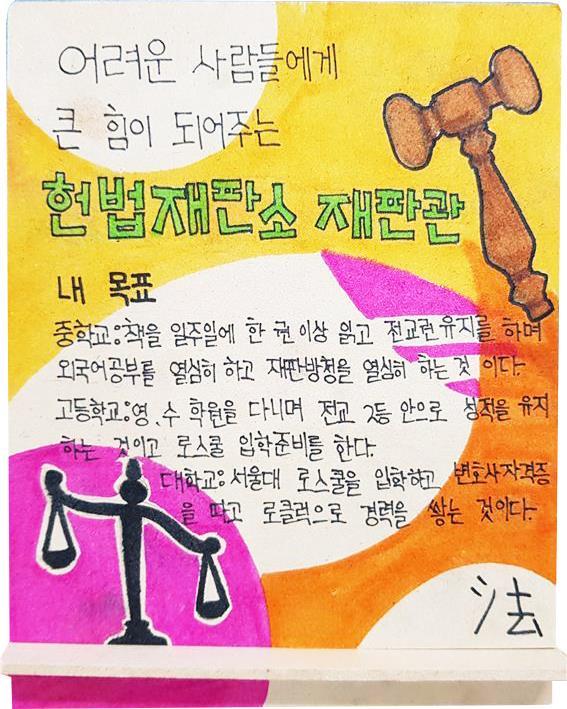 어려운 사람들에게
큰 힘이 되어주는
헌법재판소 재판관
내 목표
중학교:책을 일주일에 한 권 이상 읽고 전교권 유지를 하며
외국어공부를 열심히 하고 재판방청을 열심히 하는 것 이다.
고등학교:영,수 학원을 다니며 전교 2등 안으로 성적을 유지
하는 것이고 로스쿨 입학준비를 한다.
대학교:서울대 로스쿨을 입학하고 변호사자격증
을 따고 로클럭으로 경력을 쌓는 것이다.
法